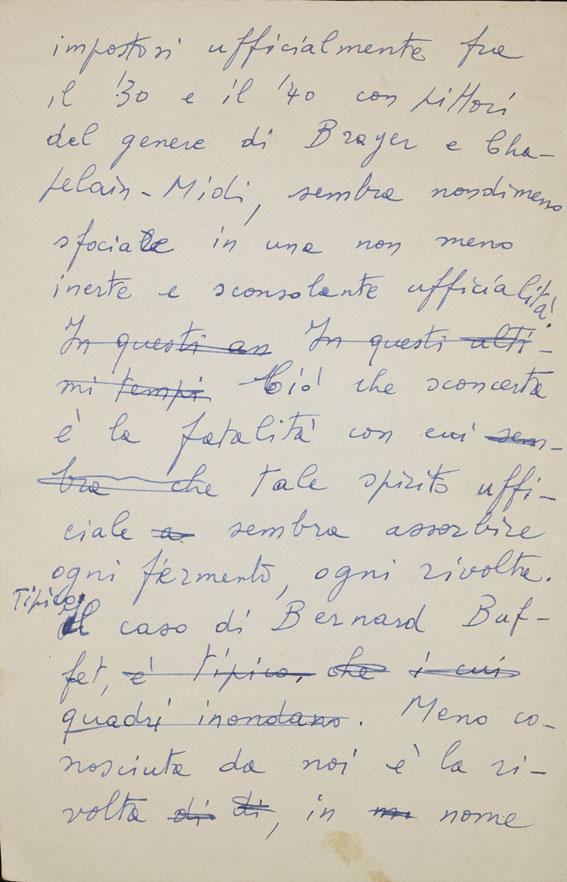 impostosi ufficialmente fra
il '30 e il '40 con pittori
del genere di Brayer e Cha-
pelain-Midi, sembra nondimeno
sfociare in una non meno
inerte e sconsolante ufficialità.
In questi an In questi ulti-
mi tempi Ciò che sconcerta
è la fatalità con cui sem-
bra che tale spirito uffi-
ciale a sembra assorbire
ogni fermento, ogni rivolta.
Tipico
il caso di Bernard Buf-
fet, è tipico, che i cui
quadri inondano. Meno co-
nosciuta da noi è la ri-
volta di di, in nome